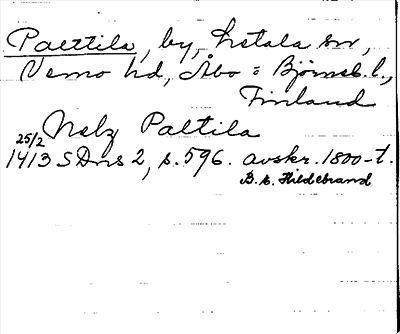 Paettila, by, Letala sn,
Vemo hd, Åbo = Björneb. l.,
Finland
Nelz Paltila
25/2
1413 SDns 2, s. 596. avskr. 1800-t.
B. E. Hildebrand